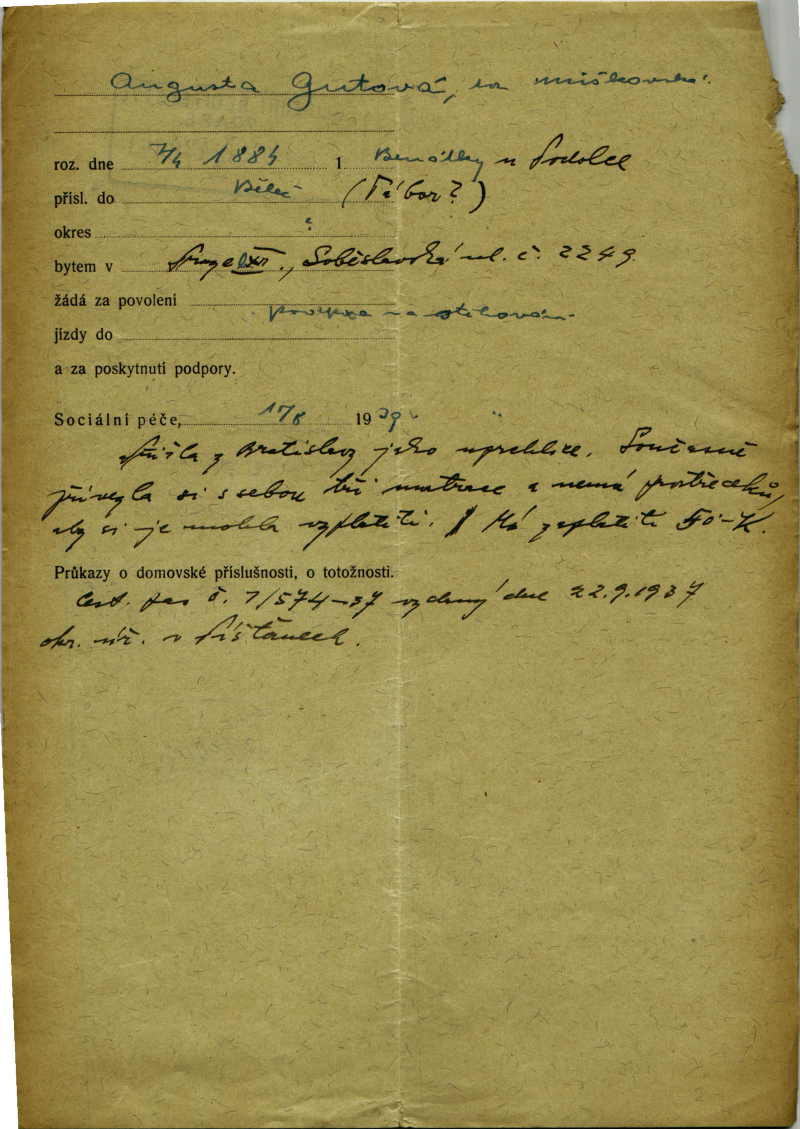 Augusta Gutová,
roz. dne 7/4 1884 1 Benátky u Podolce
přísl. do Běleč (Tábor?)
okres
bytem v Praze XII., Soběslavská ul. č. 2249
žádá za povolení
na stěhování
jízdy do
a za poskytnutí podpory.
Sociální péče, 17/8 1939
Přišla z Bratislavy jako uprchlice. Současně
přivezla si s sebou tři matrace a nemá prostředků,
aby si je mohla vyplatiti. Má zaplatiti 50-K.
Průkazy o domovské příslušnosti, o totožnosti.
Cest. pas č. 7/574-37 vydaný dne 22.9.1937
okr. úř. v Píšťanech.